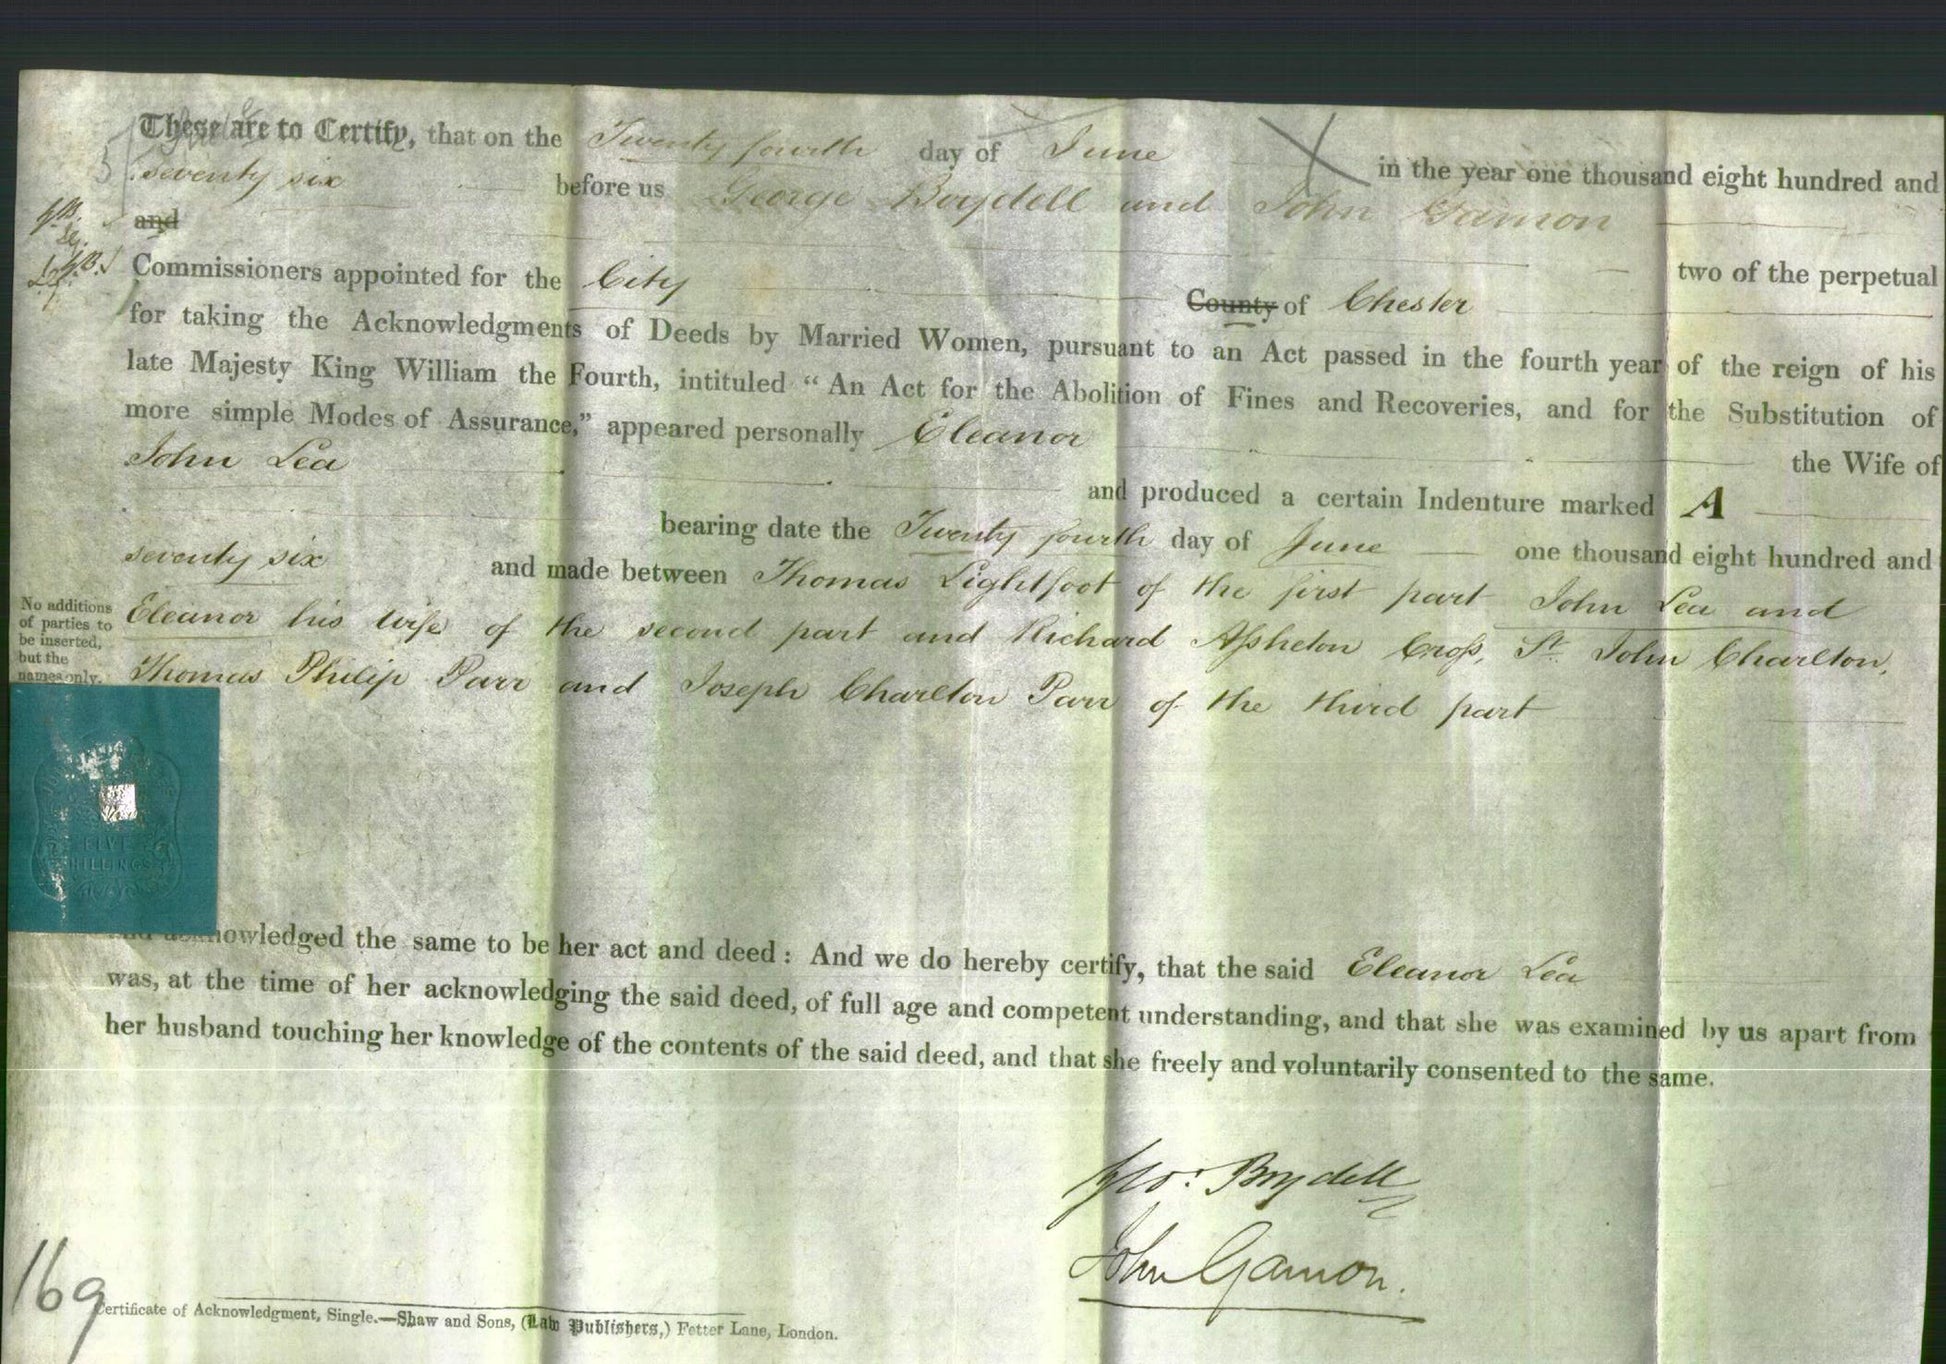 These are to Certify, that on the Twenty fourth day of June in the year one thousand eight hundred and
seventy six before us George Boydell and John Gamon
and two of the perpetual
Commissioners appointed for the City County of Chester
for taking the Acknowledgments of Deeds by Married Women, pursuant to an Act passed in the fourth year of the reign of his
late Majesty King William the Fourth, intituled “An Act for the Abolition of Fines and Recoveries, and for the Substitution of
more simple Modes of Assurance,” appeared personally Eleanor the Wife of
John Lea and produced a certain Indenture marked A
bearing date the Twenty fourth day of June one thousand eight hundred and
seventy six and made between Thomas Lightfoot of the first part John Lea and
Eleanor his wife of the second part and Richard Assheton Cross, St. John Charlton,
Thomas Philip Parr and Joseph Charlton Parr of the third part
No additions
of parties to
be inserted,
but the
names only.
FIVE
SHILLINGS
acknowledged the same to be her act and deed: And we do hereby certify, that the said Eleanor Lea
was, at the time of her acknowledging the said deed, of full age and competent understanding, and that she was examined by us apart from
her husband touching her knowledge of the contents of the said deed, and that she freely and voluntarily consented to the same.
Geo: Boydell
John Gamon.
169
Certificate of Acknowledgment, Single.—Shaw and Sons, (Law Publishers,) Fetter Lane, London.